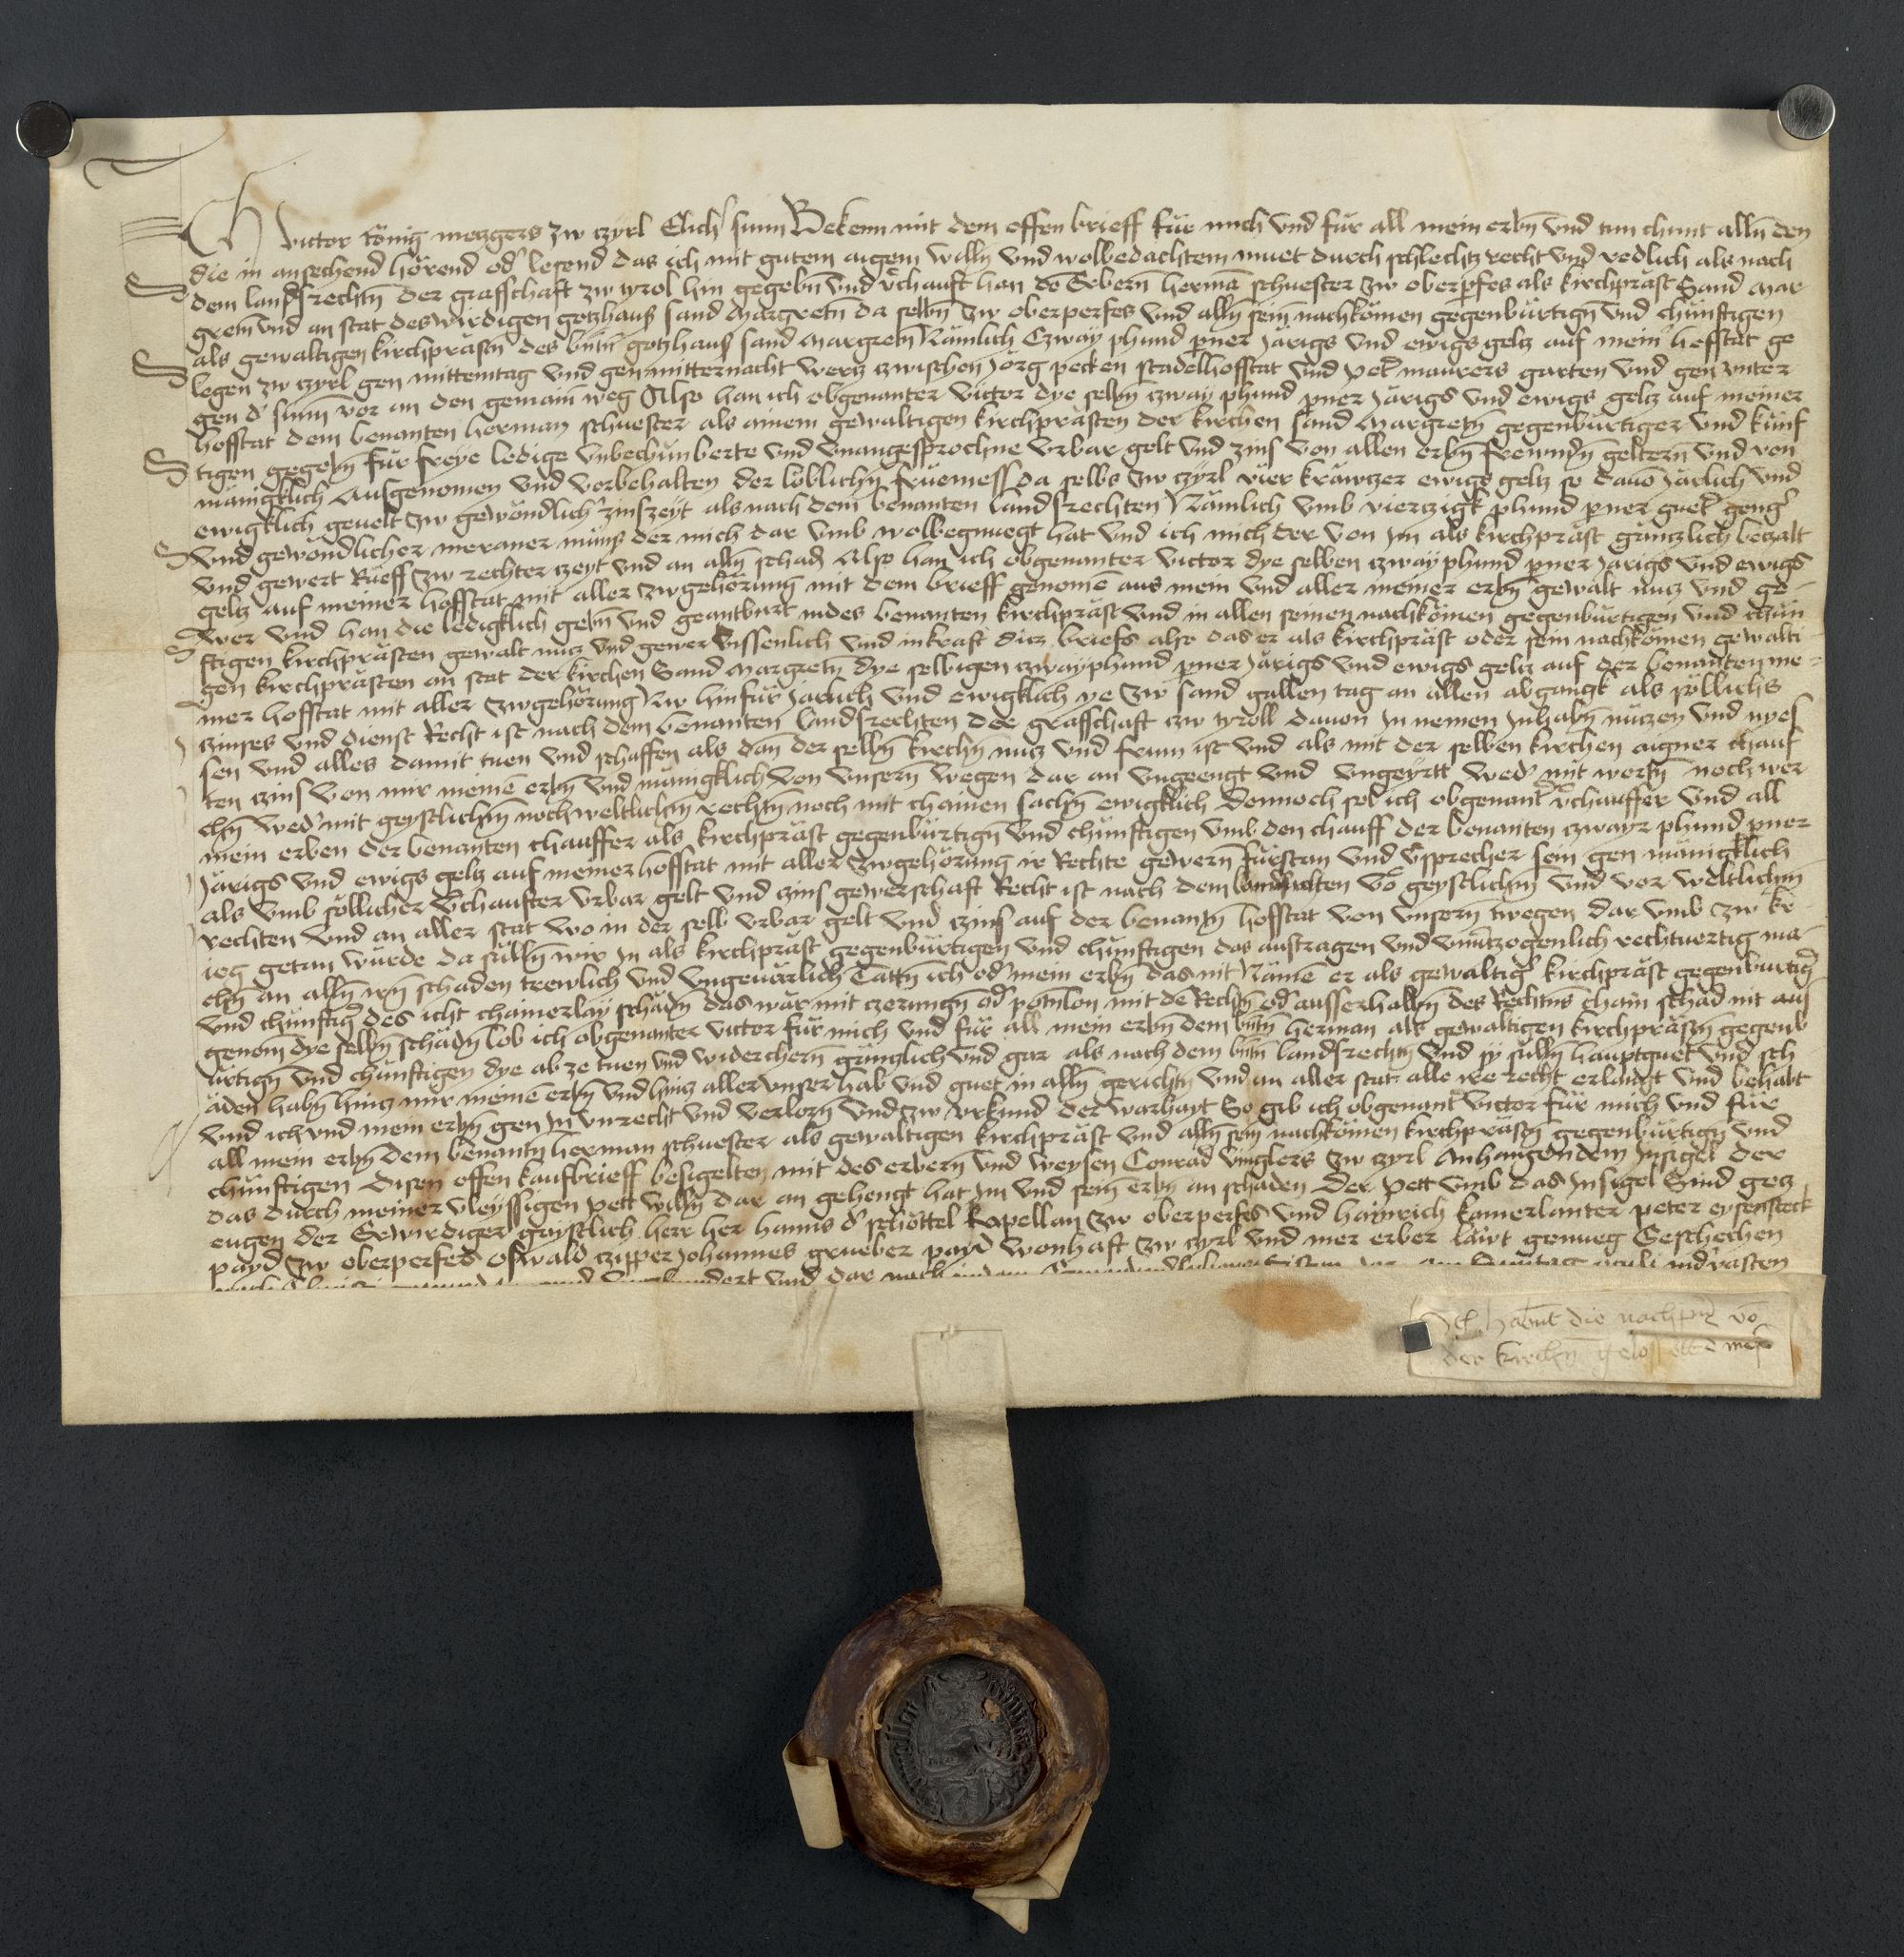 Ich victor König meczgers zw czyrl Elich sunn Bekenn mit dem offen brieff für mich vnd für all mein erbn̄ vnd tun chunt alln̄ den
die in ansechend hörend od' lesend das ich mit gutem aigem willn̄ vnd wolbedachtem muet durch schlechtz recht vnd redlich als nach
dem landsrechtn̄ der graffschaft zw tyrol hin gegebn̄ vnd v'chauft han dē Erbern̄ hermā schuester zw oberperfes als kirchpräst Sand mar
gretn̄ vnd an stat des wirdigen gotzhauß sand Margretn̄ da selbn̄ zw oberperfes vnd alln̄ sein̄ nachkömen gegenbürtign̄ vnd chünftigen
als gewaltigen kirchpräsn̄ des bntn̄ gotzhauß sand Margretn̄ Nämlich Czway phund p̄ner Järigs vnd ewigs geltz auf mein' hofstat ge
legen zw czyrl gen mittemtag vnd gen mitternacht wertz czwischen Jörg pecken stadelhofstat vnd pet' maurers garten vnd gen vnter
gen d' sunn̄ vor an den gemain̄ weg Also han ich obgenanter victor dye selbn̄ czway phund p̄ner Järigs vnd ewigs geltz auf meiner
hofstat dem benanten herman schuester als ainem gewaltigen kirchprästen der kirchen sand Margretn̄ gegenbürtiger vnd künf
tigen gegebn̄ für freye ledige vnbechümberte vnd vnangesprochne vrbar gelt vnd zins von allen erbn̄ freundn̄ geltern̄ vnd von
mänigklich Ausgenomen vnd vorbehalten der löblichn̄ früemess da selbs zw czyrl vier kräwtzer ewigs geltz so dauō Järlich vnd
ewigklich geuelt zw gewöndlich' zinszeyt als nach dem benanten landsrechten Nämlich vmb vierczigk phund p̄ner guet' geng'
vnd gewöndlicher meraner münß der mich dar vmb wolbegnuegt hat vnd ich mich der von Jm als kirchpräst gänczlich beczalt
vnd gewert Rüeff zw rechter czeyt vnd an aln̄ schadn̄ Also han ich obgenanter victor dye selben czway phund p̄ner Järigs vnd ewigs
geltz auf meiner hofstat mit aller zwgehörung mit dem brieff genomē aus mein vnd aller meiner erbn̄ gewalt nutz vnd ge
wer vnd han die ledigklich gebn̄ vnd geantburt in des benanten kirchpräst vnd in allen seinen nachkömen gegenbürtigen vnd chün
ftigen kirchprästen gewalt nutz vnd gewer wissenlich vnd in kraft ditz briefs also das er als kirchpräst oder sein nachkömen gewalti
gen kirchprästen an stat der kirchen Sand Margretn̄ dye selbigen czwayphund p̄ner Järigs vnd ewigs geltz auf der benanten me
iner hofstat mit aller zwgehörung Nw hinfür Järlich vnd ewigklich ye zw sand gallen tag an allen abgangk als söllichs
czinses vnd dienst Recht ist nach dem benanten landsrechten der graffschaft zw tyroll dauon Jn nemen Jnhabn̄ nutzen vnd nyes
sen vnd alles damit tuen vnd schaffen als dan̄ der selbn̄ kirchn̄ nutz vnd frum ist vnd als mit der selben kirchen aigner chauf
ten czins von mir meinē erbn̄ vnd mänigklich von vnsern̄ wegen dar an vngeengt vnd vngeyrtt wed' mit wortn̄ noch wer
chn̄ wed' mit geystlichn̄ noch weltlichn̄ rechtn̄ noch mit chainen sachn̄ ewigklich Dennoch sol ich obgenant' v'chauffer vnd all
mein erben der benanten chauffer als kirchpräst gegenbürtign̄ vnd chünftigen vmb den chauff der benanten czwayr phund p̄ner
Järigs vnd ewigs geltz auf meiner hofstat mit aller zwgehörung ir Rechte gewern̄ fürstan vnd v'sprecher sein gen mänigklich
als vmb söllicher v'chaufter vrbar gelt vnd czins gewerschaft Recht ist nach dem landsrechten vō geystlichn̄ vnd vor weltlichn̄
rechten vnd an aller stat wo in der selb vrbar gelt vnd czins auf der benantn̄ hofstat von vnsern̄ wegen dar vmb zw kr
ieg getan würde da sülln̄ wir Jn als kirchpräst gegenbürtigen vnd chünftigen das austragen vnd vnuerczogenlich rechtuertig ma
chn̄ an alln̄ irn̄ schaden trewlich vnd vngeuärlich Tättn̄ ich od' mein erbn̄ das nit Nämē er als gewaltig' kirchpräst gegenburtig'
vnd chünftig' des icht chainerlay schädn̄ das wär mit czerungn̄ od' potnlon mit dē Rechtn̄ od' ausserhalbn̄ des Rechtns chain schad nit aus
genom̄ dye selbn̄ schädn̄ lob ich obgenanter victor für mich vnd für all mein erbn̄ dem bntn̄ herman als gewaltigen kirchpräsn̄ gegenb
ürtign̄ vnd chünftigen dye ab ze tuen vnd widerchern̄ gänczlich vnd gar als nach dem bntn̄ landsrechtn̄ vnd sy sülln̄ hauptguet vnd sch
äden habn̄ hintz mir meinē erbn̄ vnd hintz aller vnser hab vnd guet in alln̄ gerichtn̄ vnd an aller stat alle ire recht erlangt vnd behabt
vnd ich vnd mein erbn̄ gen Jn vnrecht vnd verlorn̄ vnd zw vrkund der warhayt So gib ich obgenant' victor für mich vnd für
all mein erbn̄ dem benantn̄ herman schuester als gewaltigen kirchpräst vnd alln̄ sein̄ nachkömen kirchpräsn̄ gegenbürtign̄ vnd
chünftigen disen offen kaufbrieff besigelten mit des erbern̄ vnd weysen Conrad vinglers zw czyrl Anhangendem Jnsigel der
das durch meiner vleyssigen pett willn̄ dar an gehengt hat Jm vnd sein̄ erbn̄ an schaden Der pett vmb das Jnsigel Sind gecz
eugen der Erwirdiger gaystlich herr her hanns d' schöttel kapellan zw oberperfes vnd hainrich kamerlanter peter eysensteck
payd zw oberperfes oswald czipper Johannes grueber payd wonhaft zw czyrl vnd mer erber läwt genueg Geschechen
hundert vnd dar nach
Jtē habnt die nachpn̄ vō
der kirchn̄ gelost